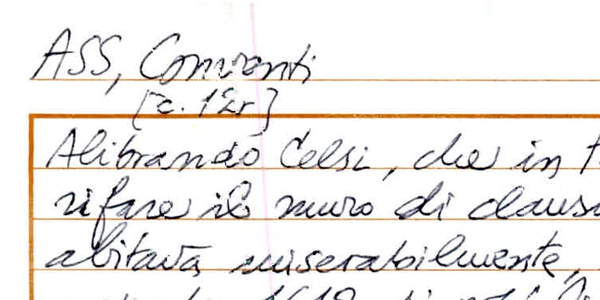 ASS, Conventi
[c. 12r]
Alibrando Celsi, che in
rifare il muro di claus
abitava miserabilmente,
1618